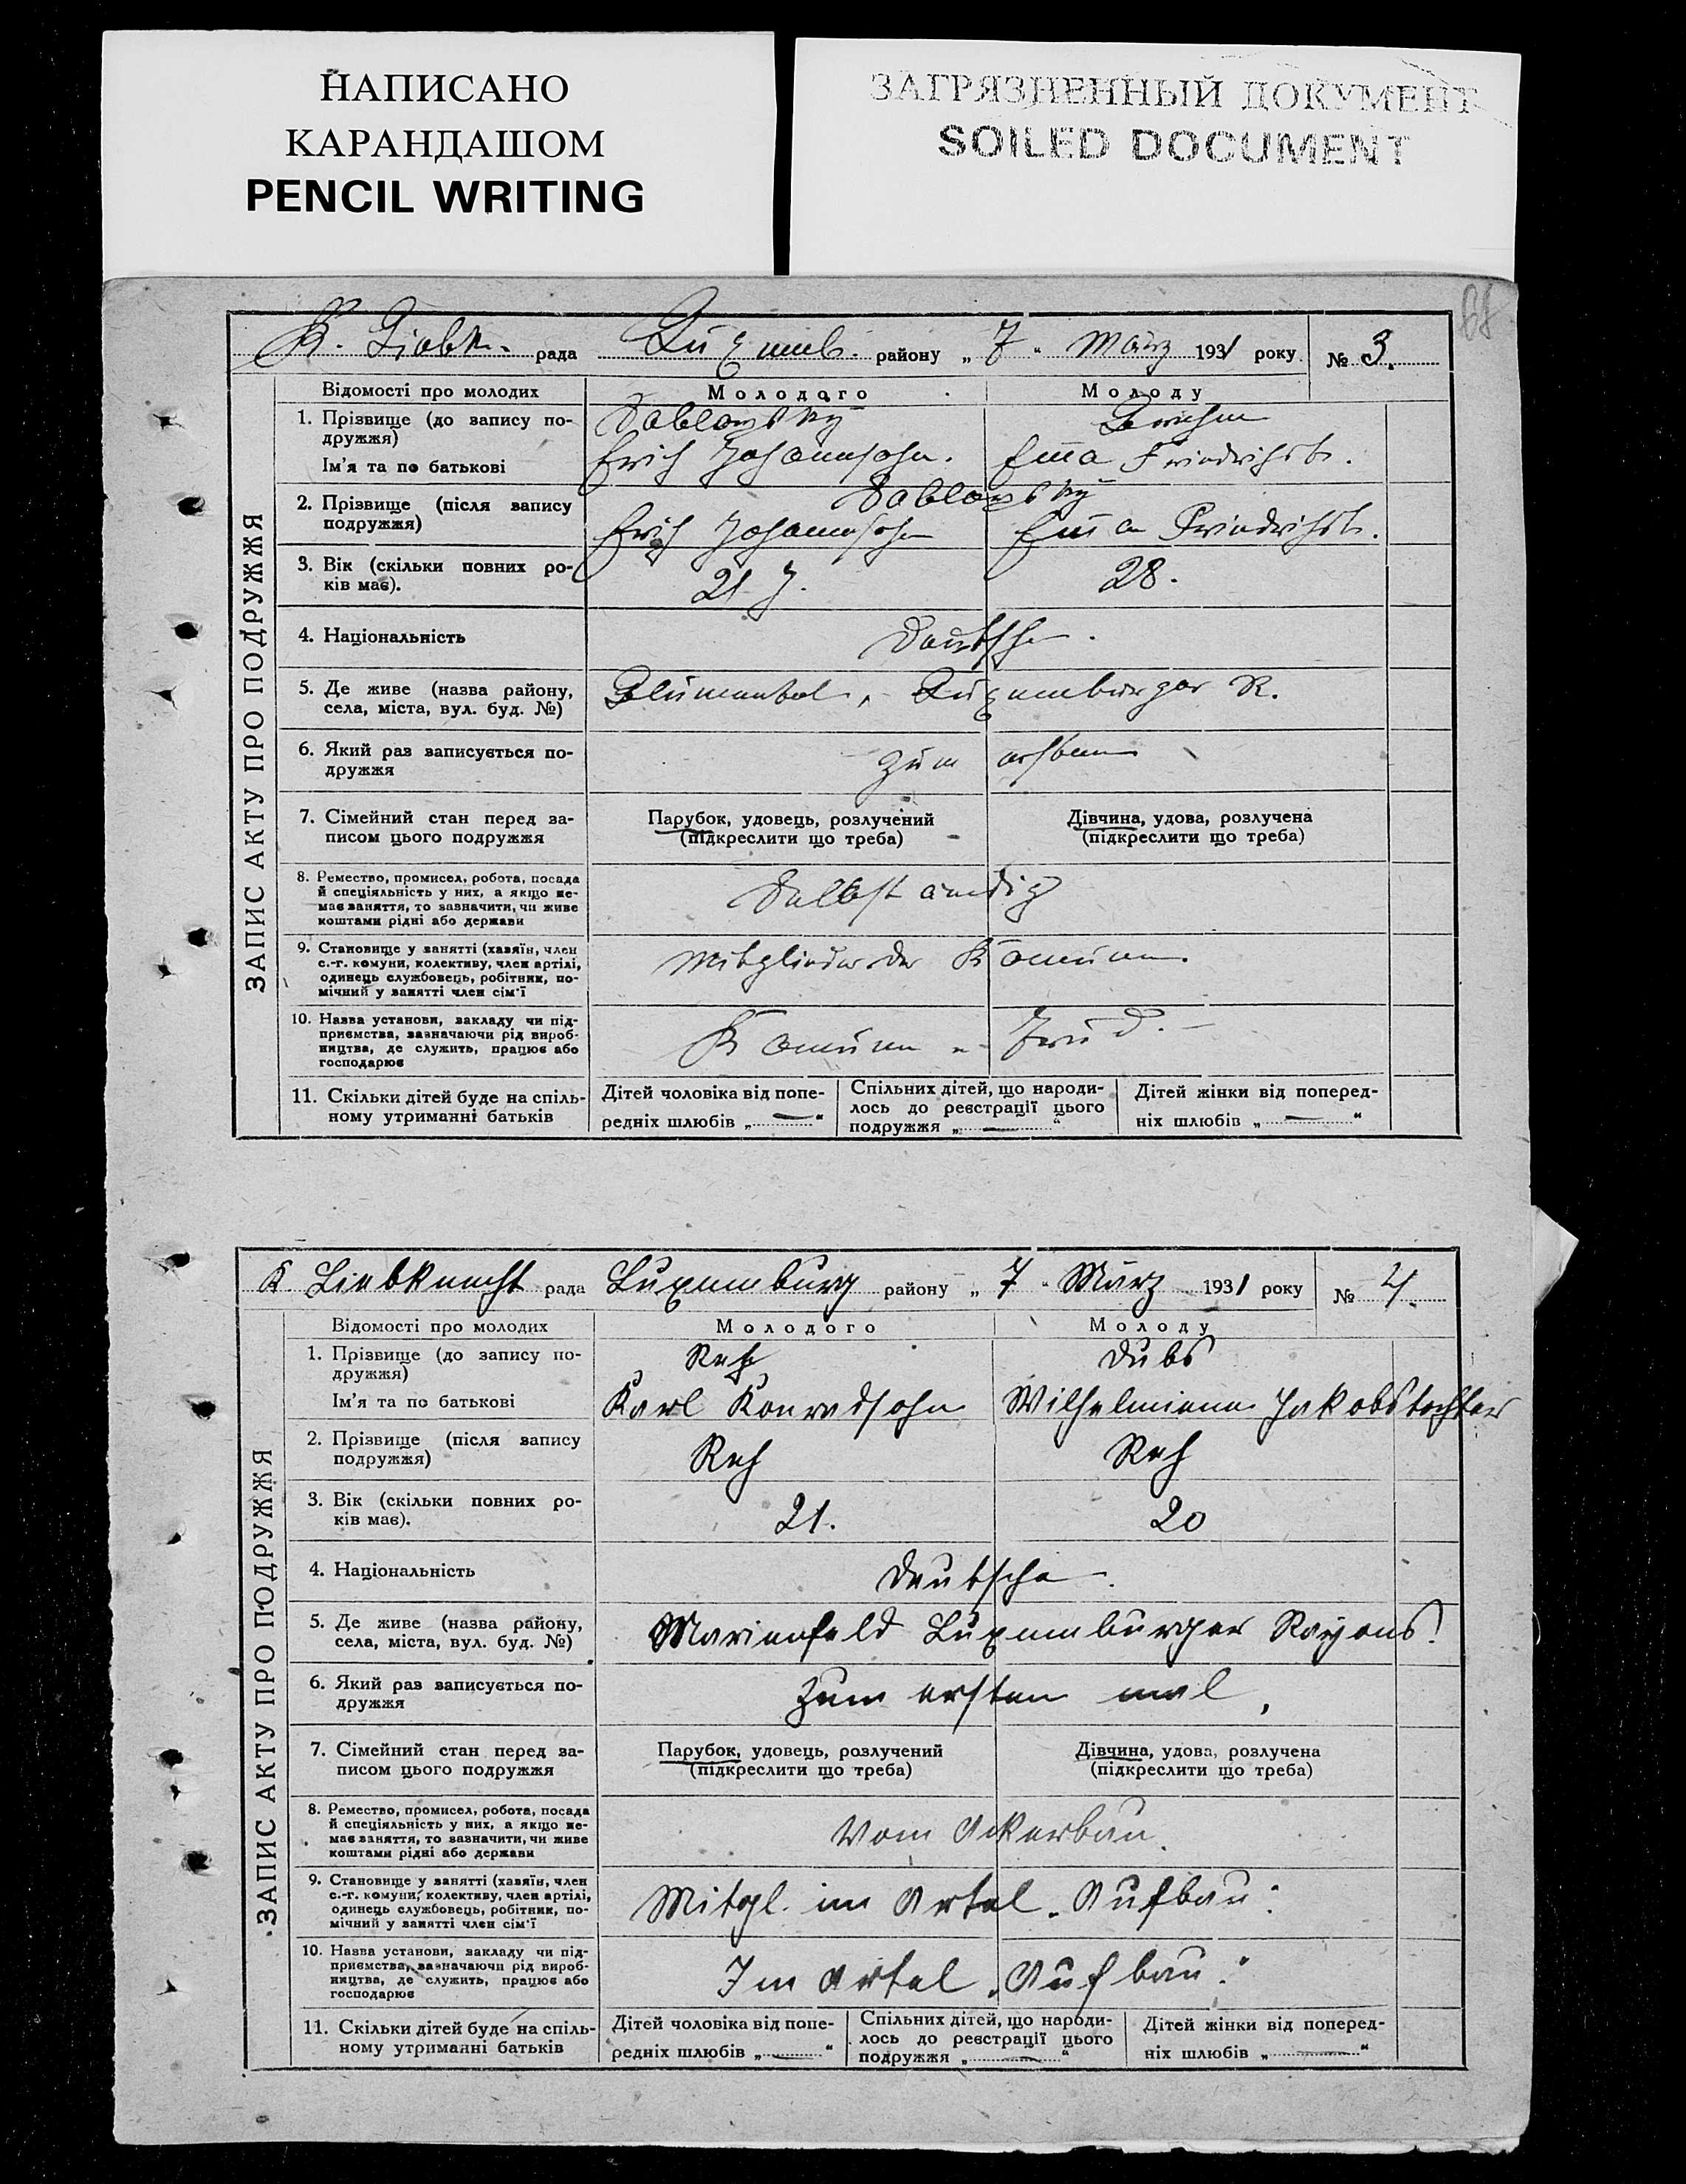 НАПИСАНО
КАРАНДАШОМ
PENCIL WRITING
ЗАГРЯЗНЕННЫЙ ДОКУМЕНТ
SOILED DOCUMENT
68
K. Liebkn. рада Luxemb. району „ 7 " März 1931 року № 3.
ЗАПИС АКТУ ПРО ПОДРУЖЖЯ
Відомості про молодих Молодого Молоду
1. Прізвище (до запису по-
дружжя)
Ім'я та по батькові
Erich Johannsohn. Emma Friedrichst.
2. Прізвище (після запису
подружжя)
Erich Johannsohn Emma Friedrichst.
3. Вік (скільки повних ро-
ків має).
21 J. 28.
4. Національність Deutsche.
5. Де живе (назва району,
села, міста, вул. буд. №)
Blumental, Luxemburger R.
6. Який раз записується по-
дружжя
zum ersten
7. Сімейний стан перед за-
писом цього подружжя
Парубок, удовець, розлучений
(підкреслити що треба)
Дівчина, удова, розлучена
(підкреслити що треба)
8. Ремество, промисел, робота, посада
й спеціяльність у них, а якщо не-
має заняття, то зазначити, чи живе
коштами рідні або держави
Selbständig
9. Становище у занятті (хазяїн, член
с.-г. комуни, колективу, член артілі,
одинець службовець, робітник, по-
мічний у занятті член сім'ї
Mitglieder der Komune.
10. Назва установи, закладу чи під-
приємства, зазначаючи рід вироб-
ництва, де служить, працює або
господарює
Komune
11. Скільки дітей буде на спіль-
ному утриманні батьків
Дітей чоловіка від попе-
редніх шлюбів „ — "
Спільних дітей, що народи-
лось до реєстрації цього
подружжя „ — "
Дітей жінки від поперед-
ніх шлюбів „ — "
K. Liebknecht рада Luxemburg району „ 7 " März 1931 року № 4.
ЗАПИС АКТУ ПРО ПОДРУЖЖЯ
Відомості про молодих Молодого Молоду
1. Прізвище (до запису по-
дружжя)
Reh Dubs
Ім'я та по батькові
Karl Konradsohn Wilhelmiene Jakobstochter
2. Прізвище (після запису
подружжя)
Reh Reh
3. Вік (скільки повних ро-
ків має).
21. 20
4. Національність Deutsche.
5. Де живе (назва району,
села, міста, вул. буд. №)
Marienfeld Luxemburger Rayons.
6. Який раз записується по-
дружжя
zum ersten mal,
7. Сімейний стан перед за-
писом цього подружжя
Парубок, удовець, розлучений
(підкреслити що треба)
Дівчина, удова, розлучена
(підкреслити що треба)
8. Ремество, промисел, робота, посада
й спеціяльність у них, а якщо не-
має заняття, то зазначити, чи живе
коштами рідні або держави
Vom Ackerbau.
9. Становище у занятті (хазяїн, член
с.-г. комуни, колективу, член артілі,
одинець службовець, робітник, по-
мічний у занятті член сім'ї
Mitgl. im Artel „Aufbau"
10. Назва установи, закладу чи під-
приємства, зазначаючи рід вироб-
ництва, де служить, працює або
господарює
Im Artel „Aufbau"
11. Скільки дітей буде на спіль-
ному утриманні батьків
Дітей чоловіка від попе-
редніх шлюбів „ — "
Спільних дітей, що народи-
лось до реєстрації цього
подружжя „ — "
Дітей жінки від поперед-
ніх шлюбів „ — "